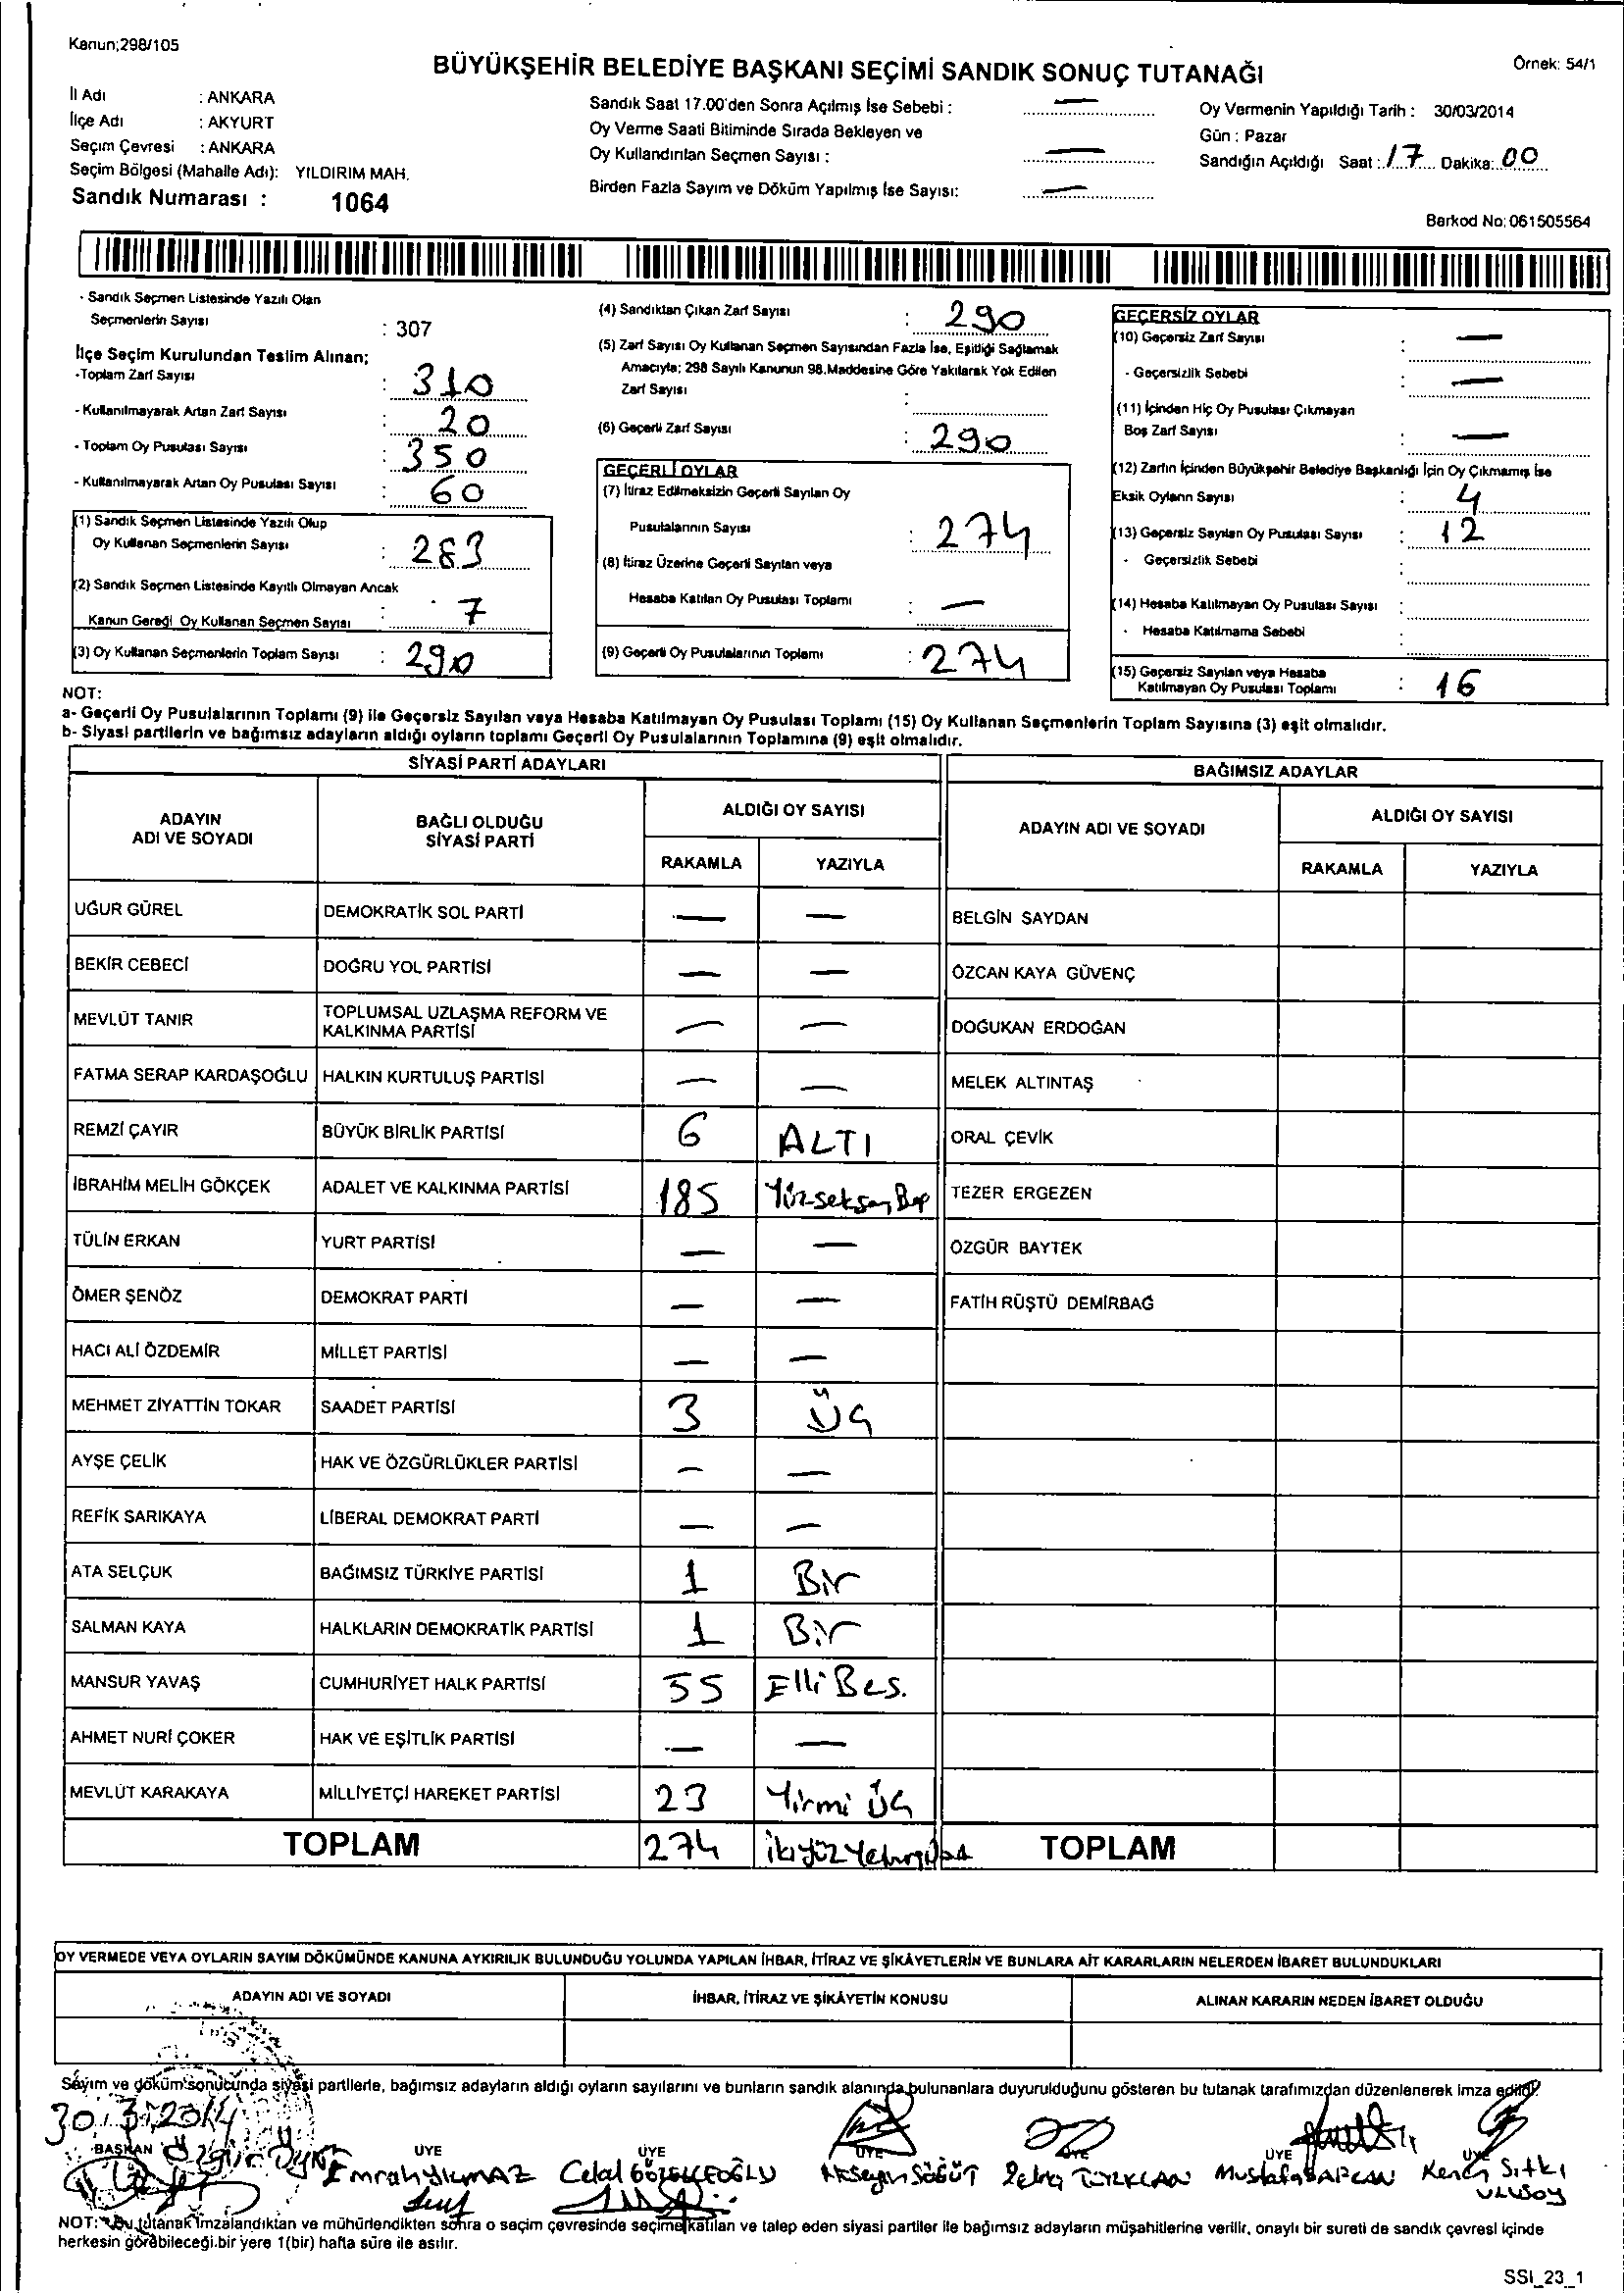 Kanun;298/105
BÜYÜKŞEHİR BELEDİYE BAŞKANI SEÇİMİ SANDIK SONUÇ TUTANAĞI
Örnek: 54/1
İl Adı : ANKARA
İlçe Adı : AKYURT
Seçim Çevresi : ANKARA
Seçim Bölgesi (Mahalle Adı): YILDIRIM MAH.
Sandık Numarası : 1064
Sandık Saat 17.00'den Sonra Açılmış İse Sebebi : —
Oy Verme Saati Bitiminde Sırada Bekleyen ve
Oy Kullandırılan Seçmen Sayısı : —
Birden Fazla Sayım ve Döküm Yapılmış İse Sayısı: —
Oy Vermenin Yapıldığı Tarih : 30/03/2014
Gün : Pazar
Sandığın Açıldığı Saat : 17 Dakika: 00
Barkod No: 061505564
- Sandık Seçmen Listesinde Yazılı Olan
Seçmenlerin Sayısı : 307
İlçe Seçim Kurulundan Teslim Alınan;
-Toplam Zarf Sayısı : 310
- Kullanılmayarak Artan Zarf Sayısı : 20
- Toplam Oy Pusulası Sayısı : 350
- Kullanılmayarak Artan Oy Pusulası Sayısı : 60
(1) Sandık Seçmen Listesinde Yazılı Olup
Oy Kullanan Seçmenlerin Sayısı : 283
(2) Sandık Seçmen Listesinde Kayıtlı Olmayan Ancak
Kanun Gereği Oy Kullanan Seçmen Sayısı : 7
(3) Oy Kullanan Seçmenlerin Toplam Sayısı : 290
(4) Sandıktan Çıkan Zarf Sayısı : 290
(5) Zarf Sayısı Oy Kullanan Seçmen Sayısından Fazla İse, Eşitliği Sağlamak
Amacıyla; 298 Sayılı Kanunun 98.Maddesine Göre Yakılarak Yok Edilen
Zarf Sayısı :
(6) Geçerli Zarf Sayısı : 290
GEÇERLİ OYLAR
(7) İtiraz Edilmeksizin Geçerli Sayılan Oy
Pusulalarının Sayısı : 274
(8) İtiraz Üzerine Geçerli Sayılan veya
Hesaba Katılan Oy Pusulası Toplamı : —
(9) Geçerli Oy Pusulalarının Toplamı : 274
GEÇERSİZ OYLAR
(10) Geçersiz Zarf Sayısı : —
- Geçersizlik Sebebi : —
(11) İçinden Hiç Oy Pusulası Çıkmayan
Boş Zarf Sayısı : —
(12) Zarfın İçinden Büyükşehir Belediye Başkanlığı İçin Oy Çıkmamış İse
Eksik Oyların Sayısı : 4
(13) Geçersiz Sayılan Oy Pusulası Sayısı : 12
- Geçersizlik Sebebi :
(14) Hesaba Katılmayan Oy Pusulası Sayısı :
- Hesaba Katılmama Sebebi :
(15) Geçersiz Sayılan veya Hesaba
Katılmayan Oy Pusulası Toplamı : 16
NOT:
a- Geçerli Oy Pusulalarının Toplamı (9) ile Geçersiz Sayılan veya Hesaba Katılmayan Oy Pusulası Toplamı (15) Oy Kullanan Seçmenlerin Toplam Sayısına (3) eşit olmalıdır.
b- Siyasi partilerin ve bağımsız adayların aldığı oyların toplamı Geçerli Oy Pusulalarının Toplamına (9) eşit olmalıdır.
SİYASİ PARTİ ADAYLARI
ADAYIN
ADI VE SOYADI
BAĞLI OLDUĞU
SİYASİ PARTİ
ALDIĞI OY SAYISI
RAKAMLA YAZIYLA
UĞUR GÜREL DEMOKRATİK SOL PARTİ — —
BEKİR CEBECİ DOĞRU YOL PARTİSİ — —
MEVLÜT TANIR TOPLUMSAL UZLAŞMA REFORM VE
KALKINMA PARTİSİ — —
FATMA SERAP KARDAŞOĞLU HALKIN KURTULUŞ PARTİSİ — —
REMZİ ÇAYIR BÜYÜK BİRLİK PARTİSİ 6 ALTI
İBRAHİM MELİH GÖKÇEK ADALET VE KALKINMA PARTİSİ 185 Yüzseksen
TÜLİN ERKAN YURT PARTİSİ — —
ÖMER ŞENÖZ DEMOKRAT PARTİ — —
HACI ALİ ÖZDEMİR MİLLET PARTİSİ — —
MEHMET ZİYATTİN TOKAR SAADET PARTİSİ 3 Üç
AYŞE ÇELİK HAK VE ÖZGÜRLÜKLER PARTİSİ — —
REFİK SARIKAYA LİBERAL DEMOKRAT PARTİ — —
ATA SELÇUK BAĞIMSIZ TÜRKİYE PARTİSİ 1 Bir
SALMAN KAYA HALKLARIN DEMOKRATİK PARTİSİ 1 Bir
MANSUR YAVAŞ CUMHURİYET HALK PARTİSİ 55 Elli Beş.
AHMET NURİ ÇOKER HAK VE EŞİTLİK PARTİSİ — —
MEVLÜT KARAKAYA MİLLİYETÇİ HAREKET PARTİSİ 23 Yirmi Üç
TOPLAM 274
BAĞIMSIZ ADAYLAR
ADAYIN ADI VE SOYADI
ALDIĞI OY SAYISI
RAKAMLA YAZIYLA
BELGİN SAYDAN
ÖZCAN KAYA GÜVENÇ
DOĞUKAN ERDOĞAN
MELEK ALTINTAŞ
ORAL ÇEVİK
TEZER ERGEZEN
ÖZGÜR BAYTEK
FATİH RÜŞTÜ DEMİRBAĞ
TOPLAM
OY VERMEDE VEYA OYLARIN SAYIM DÖKÜMÜNDE KANUNA AYKIRILIK BULUNDUĞU YOLUNDA YAPILAN İHBAR, İTİRAZ VE ŞİKÂYETLERİN VE BUNLARA AİT KARARLARIN NELERDEN İBARET BULUNDUKLARI
ADAYIN ADI VE SOYADI İHBAR, İTİRAZ VE ŞİKÂYETİN KONUSU ALINAN KARARIN NEDEN İBARET OLDUĞU
Sayım ve döküm sonucunda siyasi partilerle, bağımsız adayların aldığı oyların sayılarını ve bunların sandık alanında bulunanlara duyurulduğunu gösteren bu tutanak tarafımızdan düzenlenerek imza edildi.
30.3.2014
BAŞKAN ÜYE ÜYE ÜYE ÜYE ÜYE ÜYE
Özgür Emrah YILMAZ Celal SÖĞÜT TÜRKLAN Mustafa Kenan Sıtkı
ULUSOY
NOT: Bu tutanak imzalandıktan ve mühürlendikten sonra o seçim çevresinde seçime katılan ve talep eden siyasi partiler ile bağımsız adayların müşahitlerine verilir, onaylı bir sureti de sandık çevresi içinde
herkesin görebileceği bir yere 1(bir) hafta süre ile asılır.
SSI_23_1